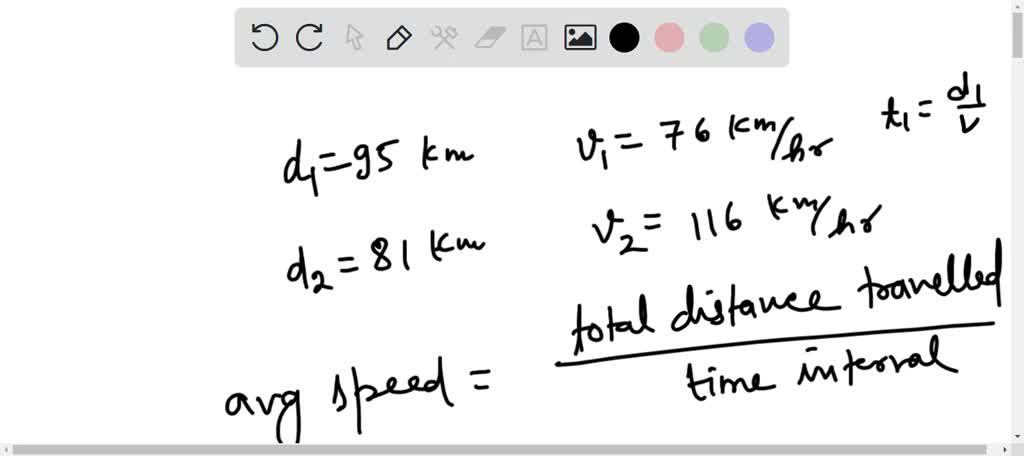 d₁=95 km v₁ = 76 km/hr t₁ = d₁/v
d₂ = 81 km v₂ = 116 km/hr
avg speed = total distance travelled / time interval